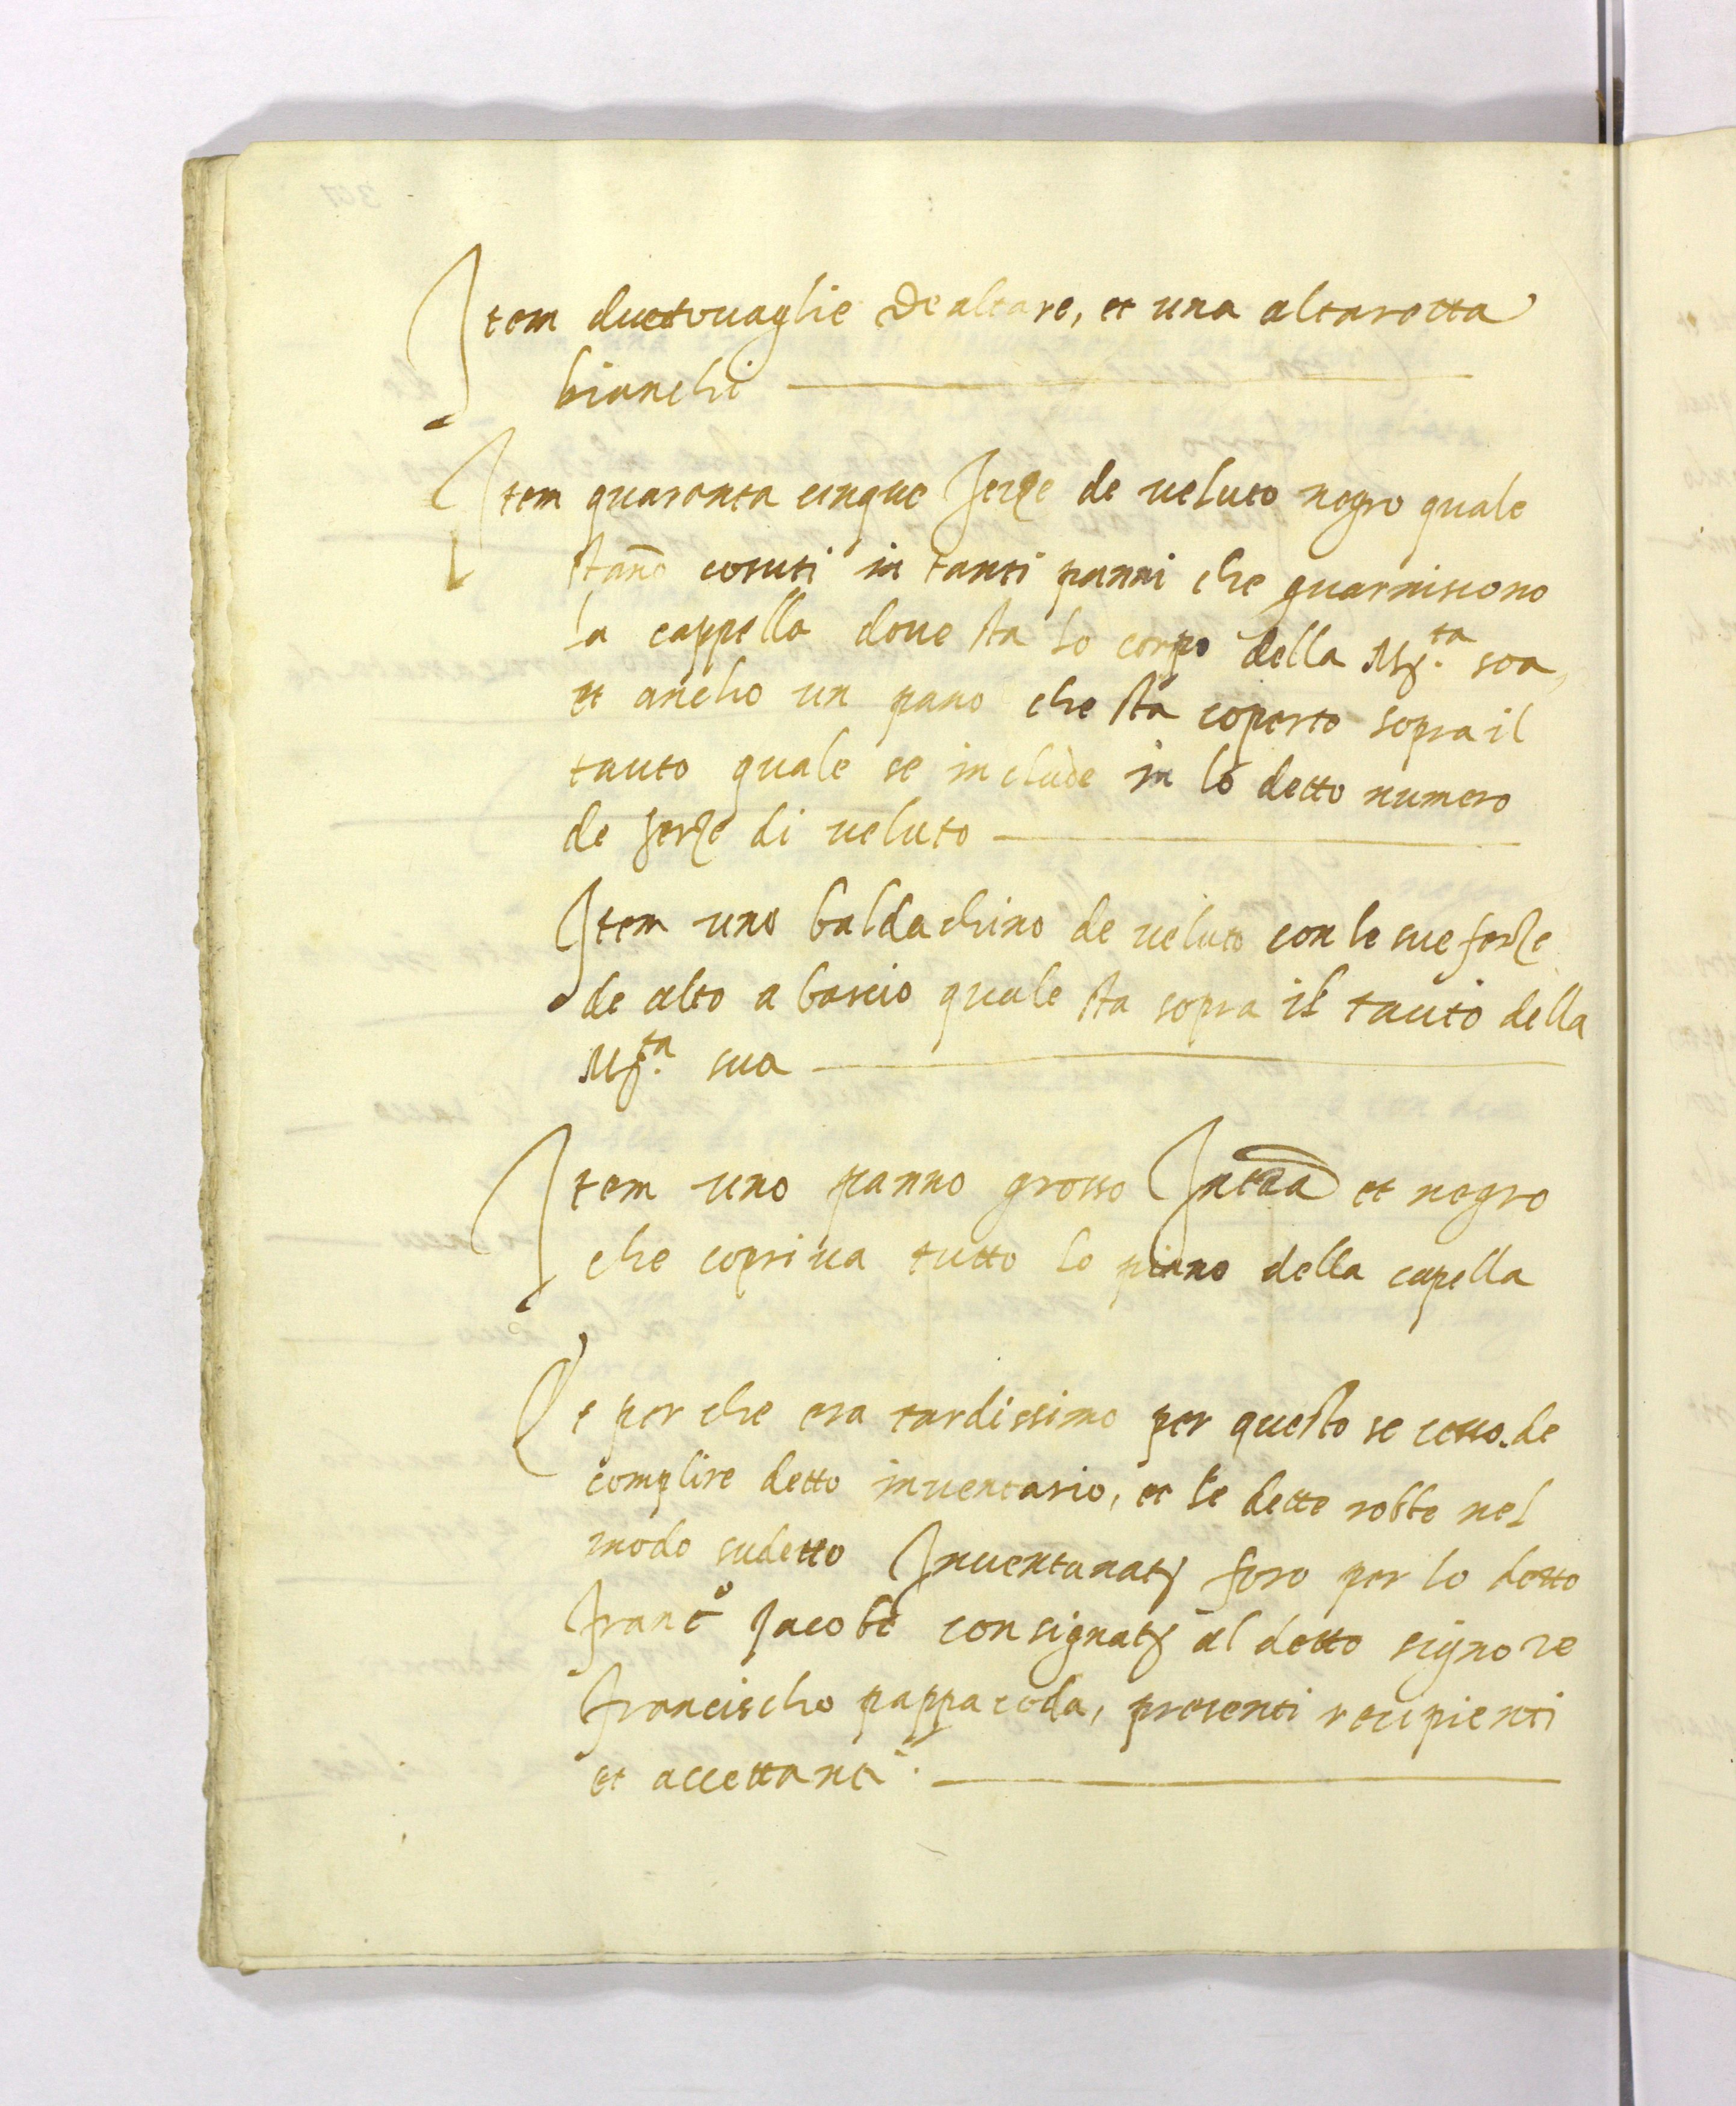 Item due tovaglie de altare, et una altaretta
bianchi
Item quaranta cinque ferze de veluto negro quale
stano cosuti in tanti panni che guarniscono
la cappella dove sta lo corpo della M.ta soa,
et ancho un pano che sta coperto sopra il
tauto quale se include in lo detto numero
de ferze di veluto
Item uno baldachino de veluto con le sue ferze
de alto a bascio quale sta sopra il tauto della
M.ta sua
Item uno panno grosso et negro
che copriva tutto lo piano della capella
E perche era tardissimo per questo se cesso de
complire detto inventario, et le dette robbe nel
modo sudetto foro per lo detto
Franc.o Jacobe al detto signore
Francischo pappacoda, presenti recipienti
et accettanti